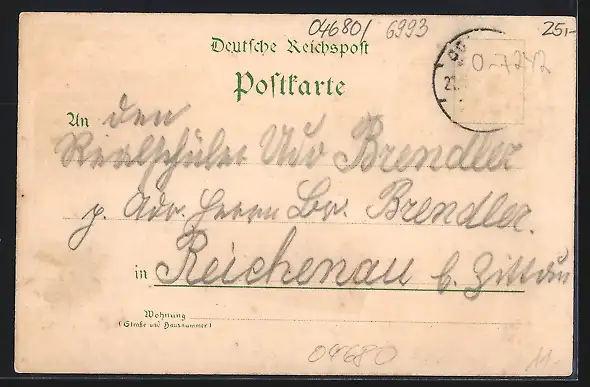 04680/ 6993 25,-
Deutsche Reichspost
Postkarte
An den
Realschüler Udo Brendler
p. Adr. Herrn Br. Brendler.
in Reichenau b. Zittau
Wohnung
(Straße und Hausnummer)
04680